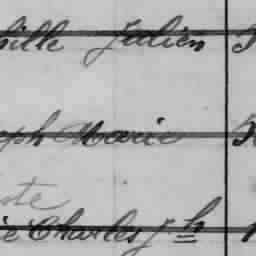 ille Julien
ph Marie
ste
ie Charles Jh